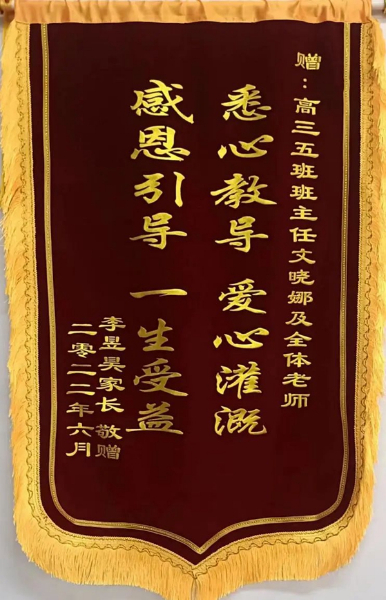 赠：高三五班班主任文晓娜及全体老师
悉心教导 爱心灌溉
感恩引导 一生受益
李昱昊家长 敬赠
二零二二年六月